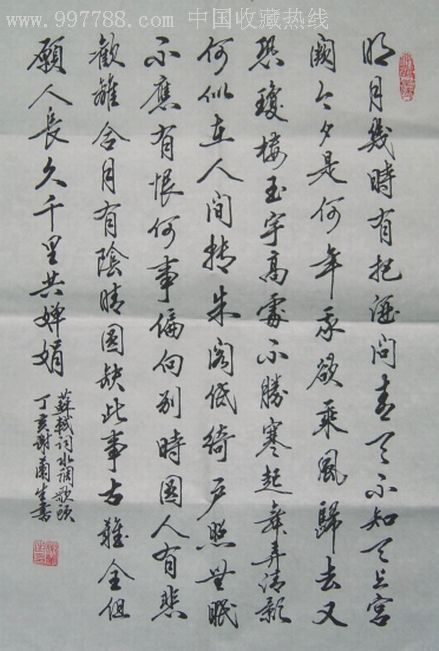 www.997788.com 中国收藏热线
明月幾時有把酒问青天不知天上宫
阙今夕是何年我欲乘風歸去又
恐瓊楼玉宇高處不勝寒起舞弄清影
何似在人间转朱阁低绮户照無眠
不應有恨何事偏向别時圆人有悲
歡離合月有陰晴圆缺此事古難全但
願人長久千里共婵娟
蘇軾词水调歌頭
丁亥谢蘭生書